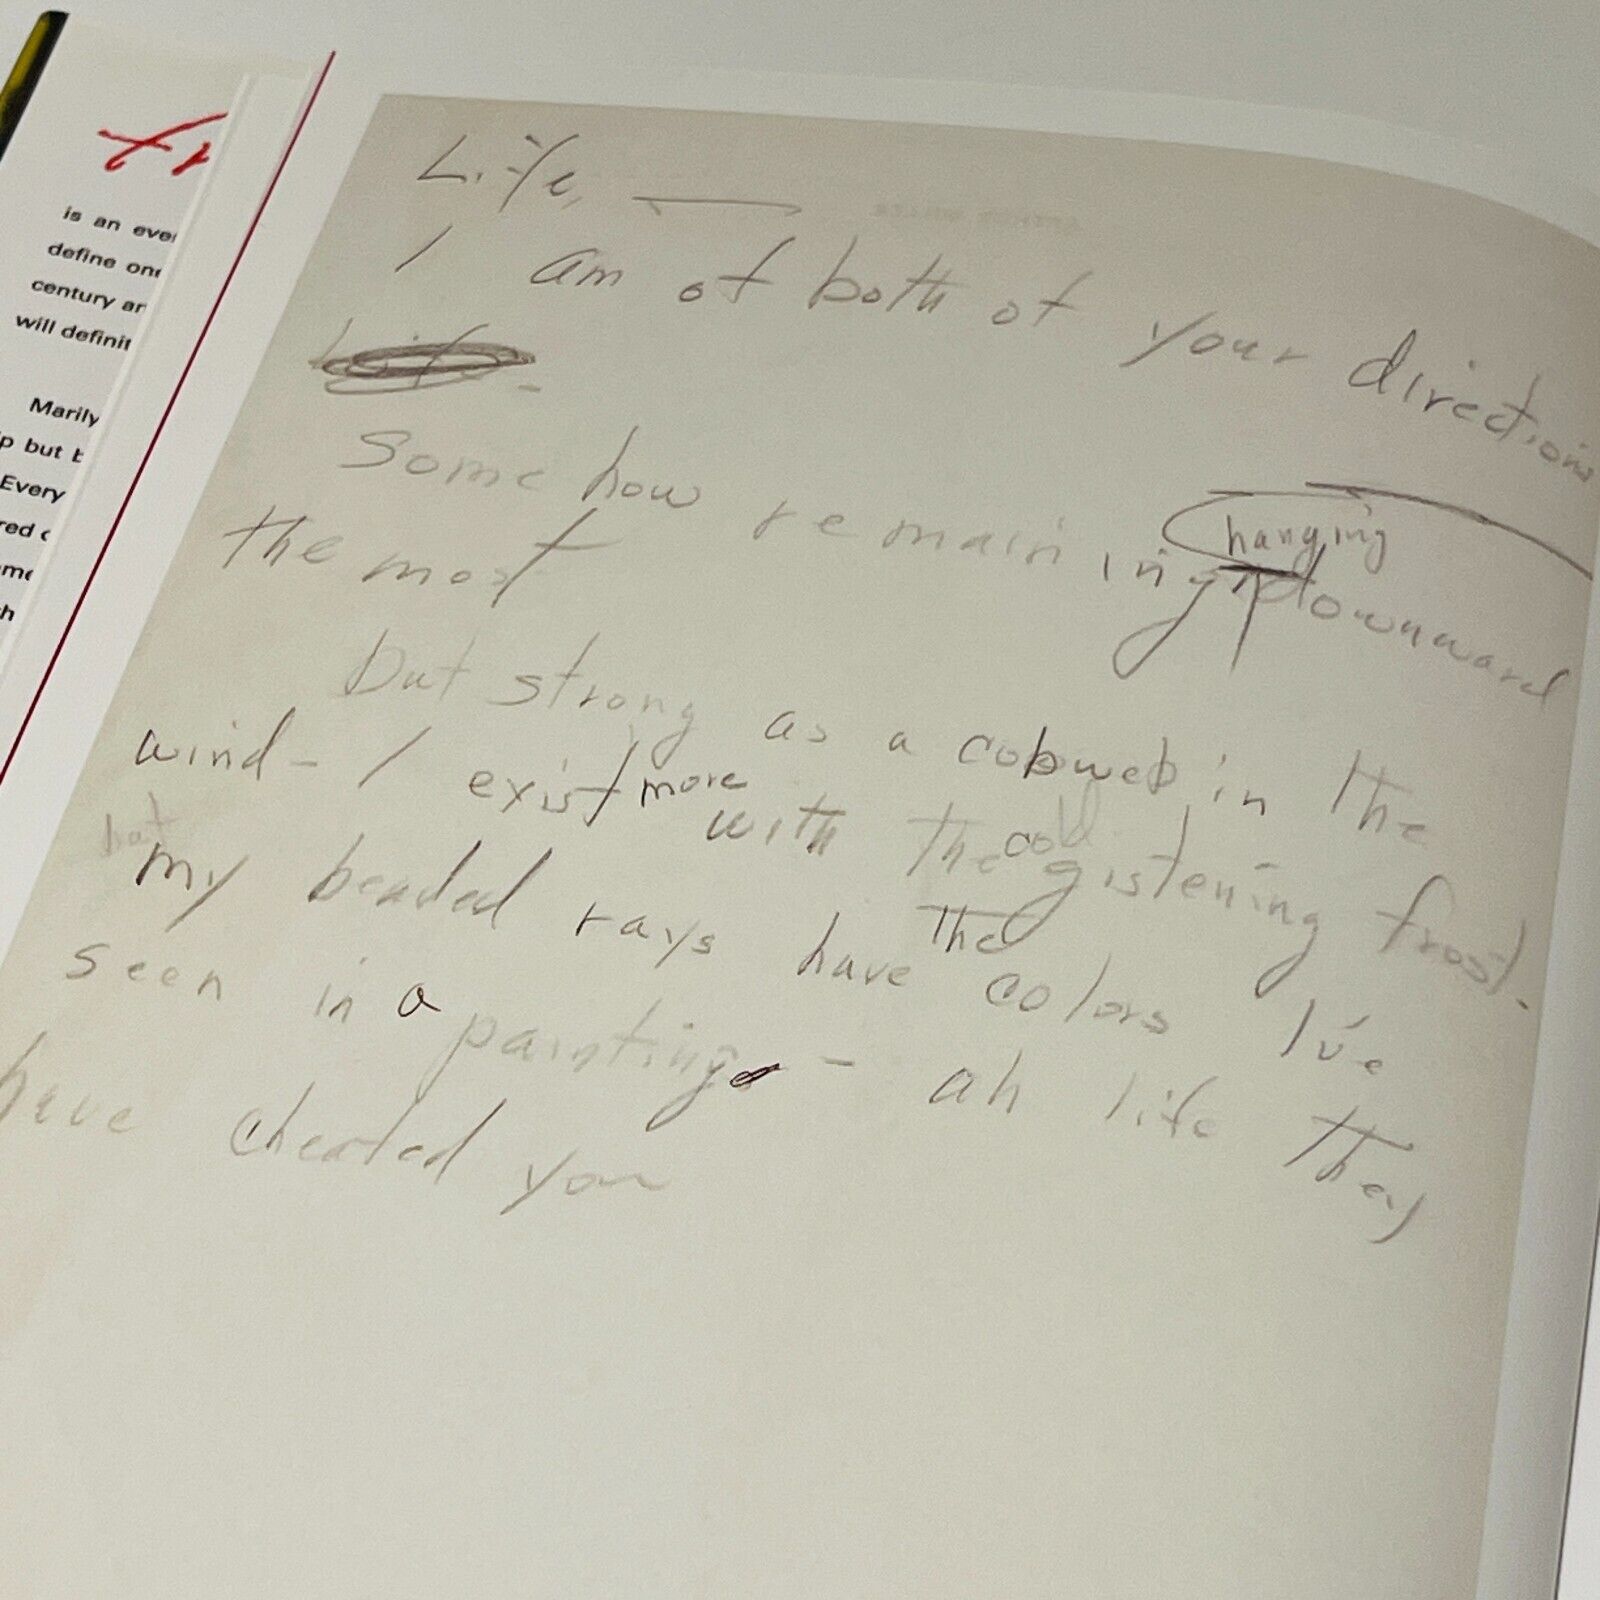 Fr
is an eve
define one
century ar
will definit
Marily
p but b
Every
red c
me
h
Life,
I am of both of your directions
Life
Some how remaining hanging downward
the most
but strong as a cobweb in the
wind - I exist more with the cold gistening frost.
but my beaded rays have the colors I've
seen in a painting - ah life they
have cheated you